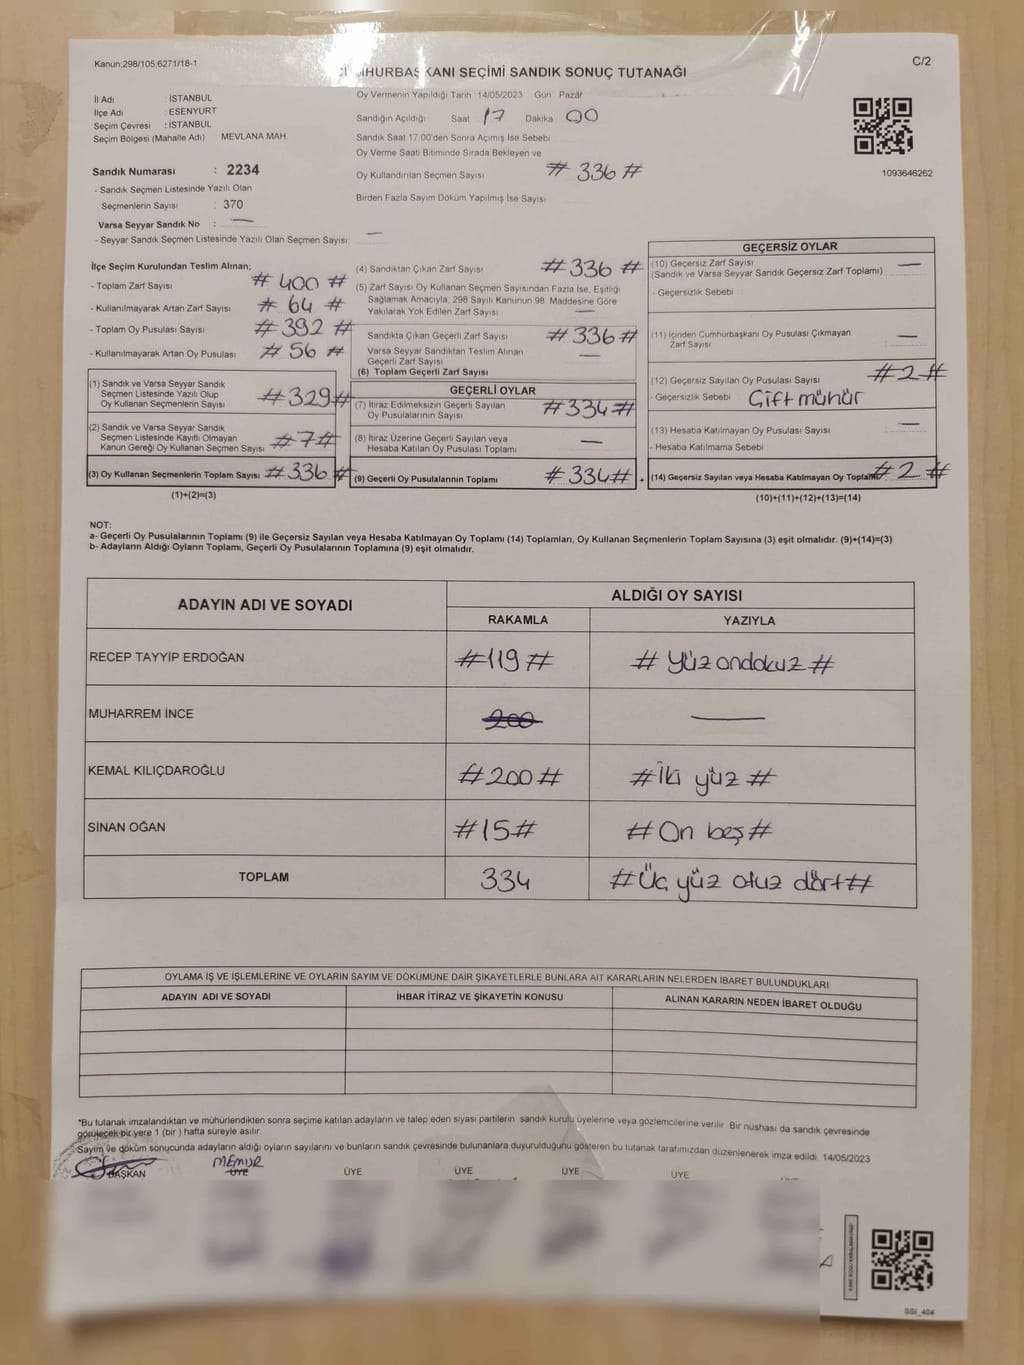 Kanun;298/105;6271/18-1
CUMHURBAŞKANI SEÇİMİ SANDIK SONUÇ TUTANAĞI
C/2
İl Adı : İSTANBUL
İlçe Adı : ESENYURT
Seçim Çevresi : İSTANBUL
Seçim Bölgesi (Mahalle Adı) MEVLANA MAH
Oy Vermenin Yapıldığı Tarih 14/05/2023 Gün Pazar
Sandığın Açıldığı Saat 17 Dakika 00
Sandık Saat 17.00'den Sonra Açımış İse Sebebi
Oy Verme Saati Bitiminde Sırada Bekleyen ve
Oy Kullandırılan Seçmen Sayısı # 336 #
Birden Fazla Sayım Döküm Yapılmış İse Sayısı
1093646262
Sandık Numarası : 2234
- Sandık Seçmen Listesinde Yazılı Olan
Seçmenlerin Sayısı : 370
Varsa Seyyar Sandık No : —
- Seyyar Sandık Seçmen Listesinde Yazılı Olan Seçmen Sayısı: —
İlçe Seçim Kurulundan Teslim Alınan;
- Toplam Zarf Sayısı # 400 #
- Kullanılmayarak Artan Zarf Sayısı # 64 #
- Toplam Oy Pusulası Sayısı # 392 #
- Kullanılmayarak Artan Oy Pusulası # 56 #
(1) Sandık ve Varsa Seyyar Sandık
Seçmen Listesinde Yazılı Olup
Oy Kullanan Seçmenlerin Sayısı # 329 #
(2) Sandık ve Varsa Seyyar Sandık
Seçmen Listesinde Kayıtlı Olmayan
Kanun Gereği Oy Kullanan Seçmen Sayısı # 7 #
(3) Oy Kullanan Seçmenlerin Toplam Sayısı # 336 #
(1)+(2)=(3)
(4) Sandıktan Çıkan Zarf Sayısı # 336 #
(5) Zarf Sayısı Oy Kullanan Seçmen Sayısından Fazla İse, Eşitliği
Sağlamak Amacıyla; 298 Sayılı Kanunun 98. Maddesine Göre
Yakılarak Yok Edilen Zarf Sayısı —
Sandıkta Çıkan Geçerli Zarf Sayısı # 336 #
Varsa Seyyar Sandıktan Teslim Alınan
Geçerli Zarf Sayısı —
(6) Toplam Geçerli Zarf Sayısı
GEÇERLİ OYLAR
(7) İtiraz Edilmeksizin Geçerli Sayılan
Oy Pusulalarının Sayısı # 334 #
(8) İtiraz Üzerine Geçerli Sayılan veya
Hesaba Katılan Oy Pusulası Toplamı —
(9) Geçerli Oy Pusulalarının Toplamı # 334 # +
GEÇERSİZ OYLAR
(10) Geçersiz Zarf Sayısı —
(Sandık ve Varsa Seyyar Sandık Geçersiz Zarf Toplamı) :
- Geçersizlik Sebebi
(11) İçinden Cumhurbaşkanı Oy Pusulası Çıkmayan
Zarf Sayısı : —
(12) Geçersiz Sayılan Oy Pusulası Sayısı # 2 #
- Geçersizlik Sebebi Çift mühür
(13) Hesaba Katılmayan Oy Pusulası Sayısı —
- Hesaba Katılmama Sebebi
(14) Geçersiz Sayılan veya Hesaba Katılmayan Oy Toplamı # 2 #
(10)+(11)+(12)+(13)=(14)
NOT:
a- Geçerli Oy Pusulalarının Toplamı (9) ile Geçersiz Sayılan veya Hesaba Katılmayan Oy Toplamı (14) Toplamları, Oy Kullanan Seçmenlerin Toplam Sayısına (3) eşit olmalıdır. (9)+(14)=(3)
b- Adayların Aldığı Oyların Toplamı, Geçerli Oy Pusulalarının Toplamına (9) eşit olmalıdır.
ADAYIN ADI VE SOYADI
ALDIĞI OY SAYISI
RAKAMLA YAZIYLA
RECEP TAYYİP ERDOĞAN # 119 # # Yüz ondokuz #
MUHARREM İNCE 200 —
KEMAL KILIÇDAROĞLU # 200 # # İki yüz #
SİNAN OĞAN # 15 # # On beş #
TOPLAM 334 # Üç yüz otuz dört #
OYLAMA İŞ VE İŞLEMLERİNE VE OYLARIN SAYIM VE DÖKÜMÜNE DAİR ŞİKAYETLERLE BUNLARA AİT KARARLARIN NELERDEN İBARET BULUNDUKLARI
ADAYIN ADI VE SOYADI İHBAR İTİRAZ VE ŞİKAYETİN KONUSU ALINAN KARARIN NEDEN İBARET OLDUĞU
*Bu tutanak imzalandıktan ve mühürlendikten sonra seçime katılan adayların ve talep eden siyasi partilerin sandık kurulu üyelerine veya gözlemcilerine verilir. Bir nüshası da sandık çevresinde
görülecek bir yere 1 (bir ) hafta süreyle asılır.
Sayım ve döküm sonucunda adayların aldığı oyların sayılarını ve bunların sandık çevresinde bulunanlara duyurulduğunu gösteren bu tutanak tarafımızdan düzenlenerek imza edildi. 14/05/2023
MEMUR
BAŞKAN ÜYE ÜYE ÜYE ÜYE ÜYE
SSİ_404